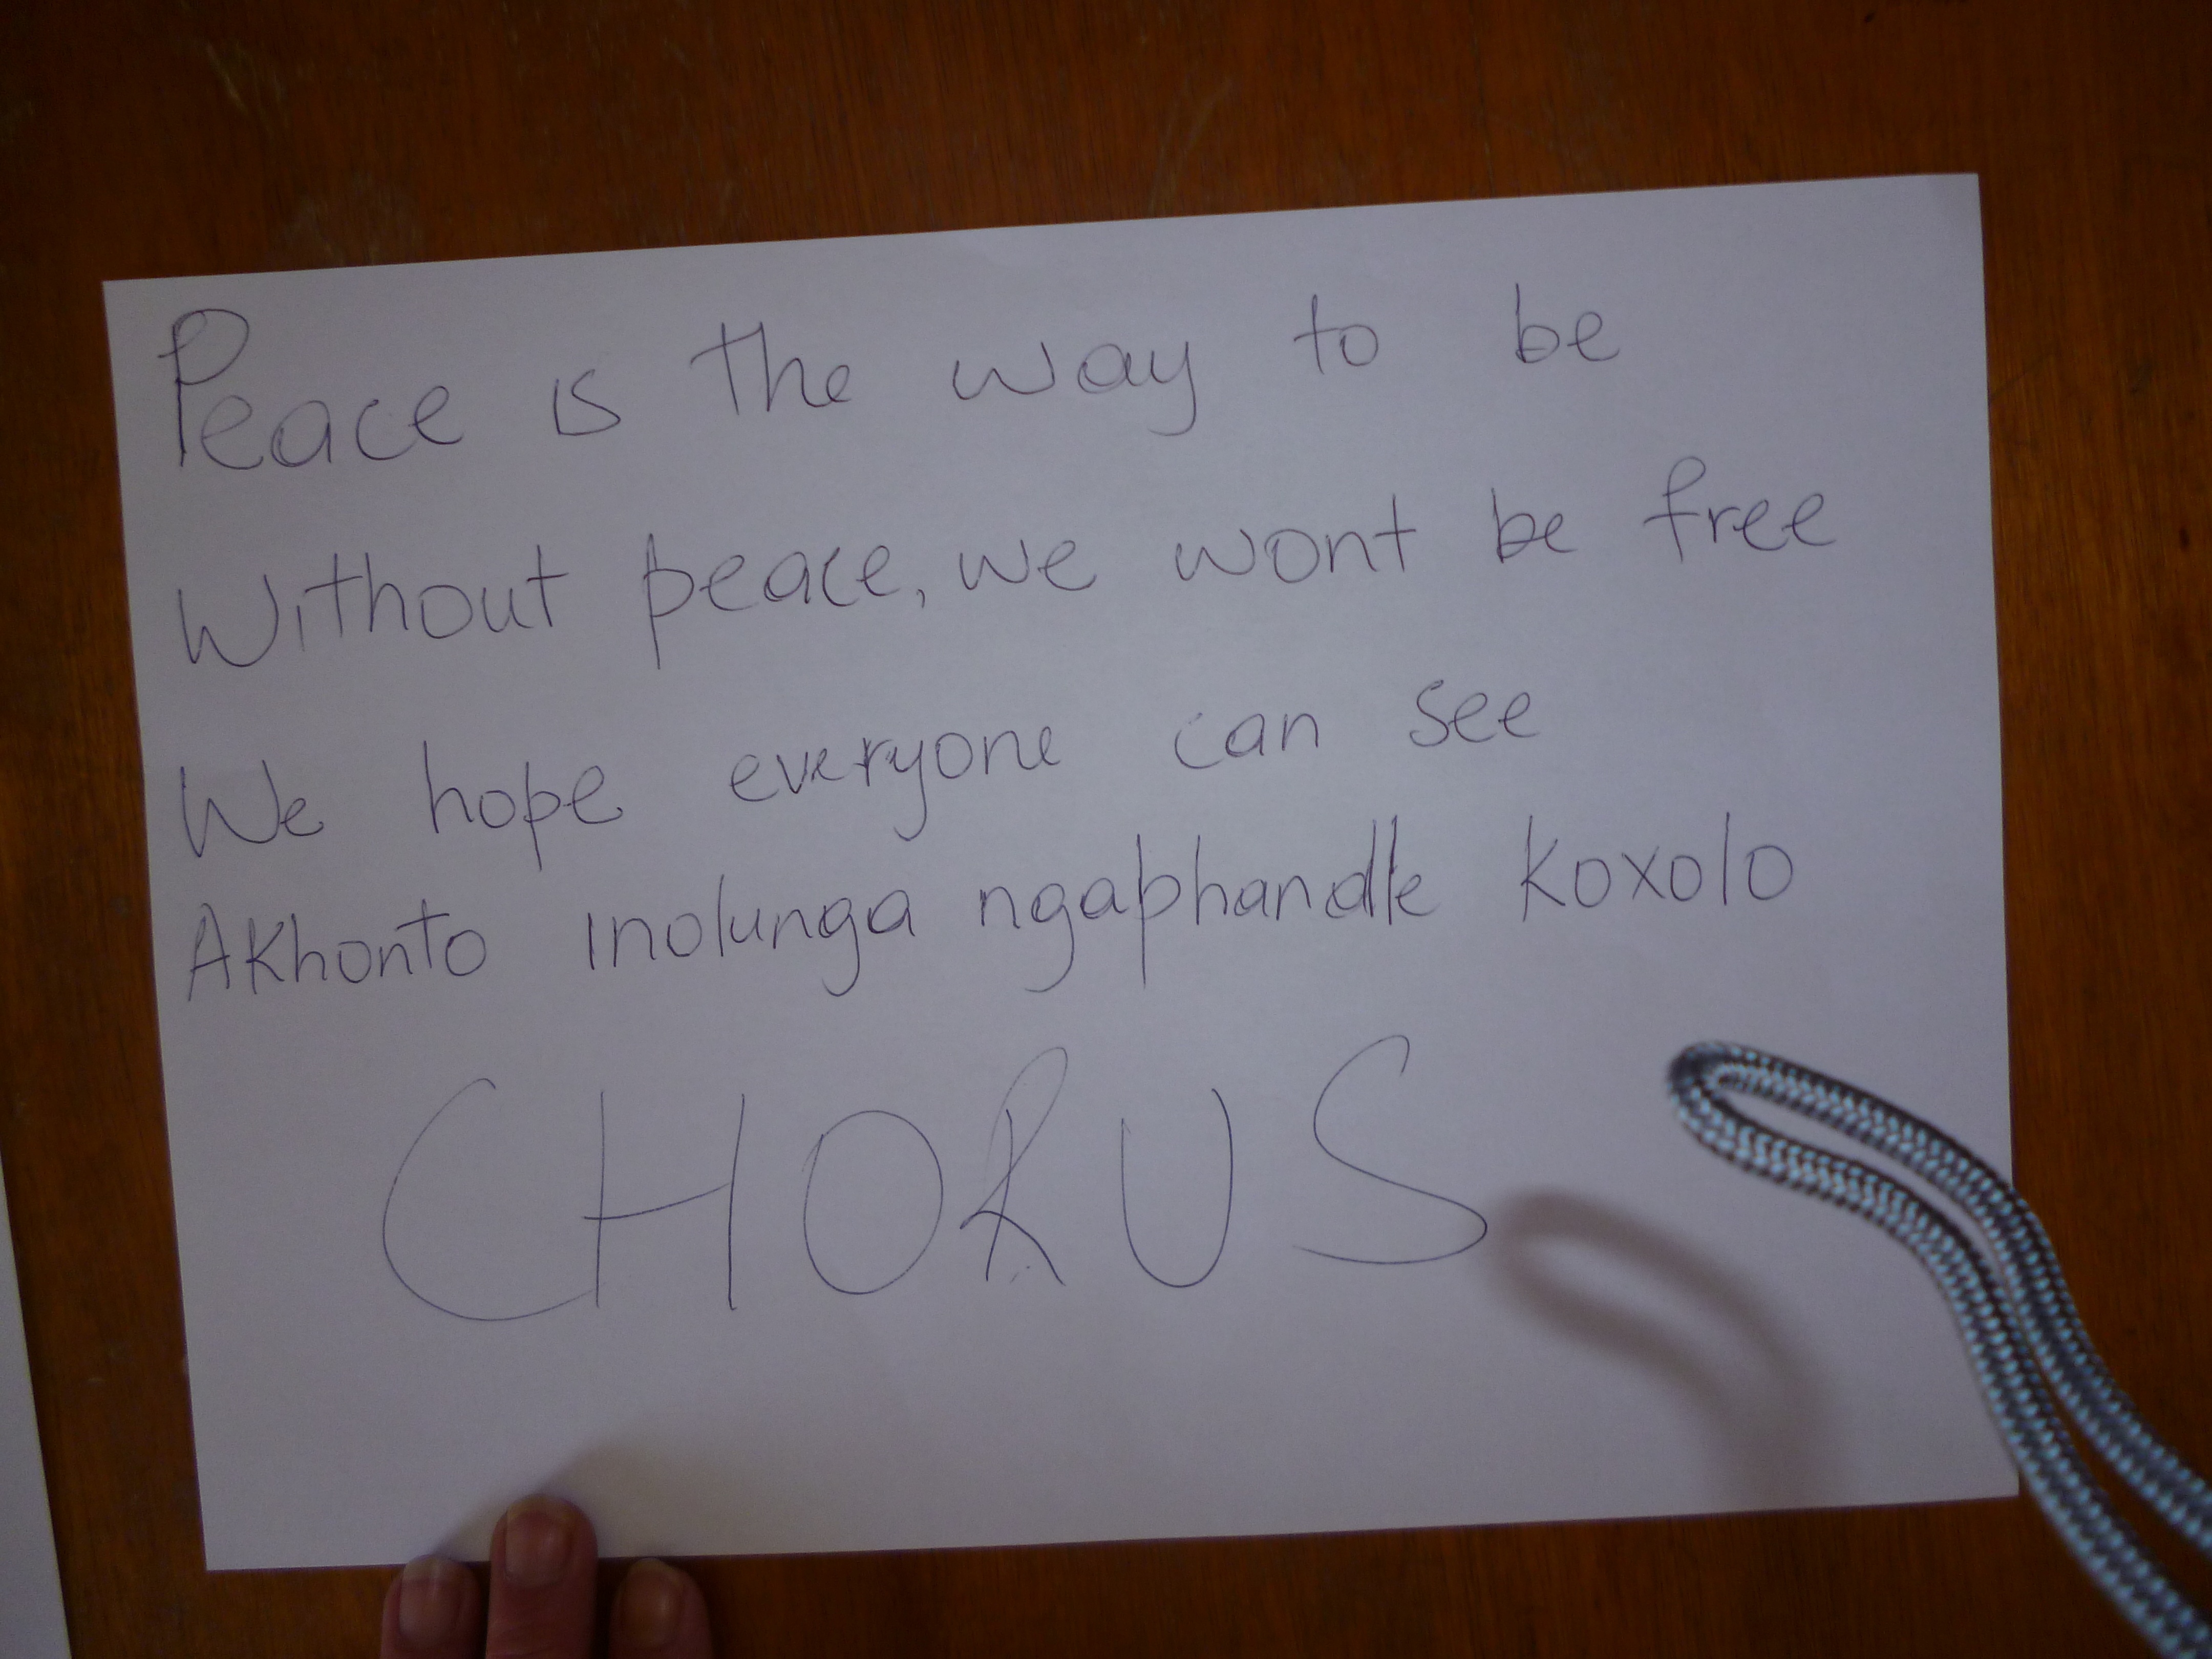 Peace is the way to be
Without peace, we wont be free
We hope everyone can see
Akhonto inolunga ngaphandle koxolo
CHORUS